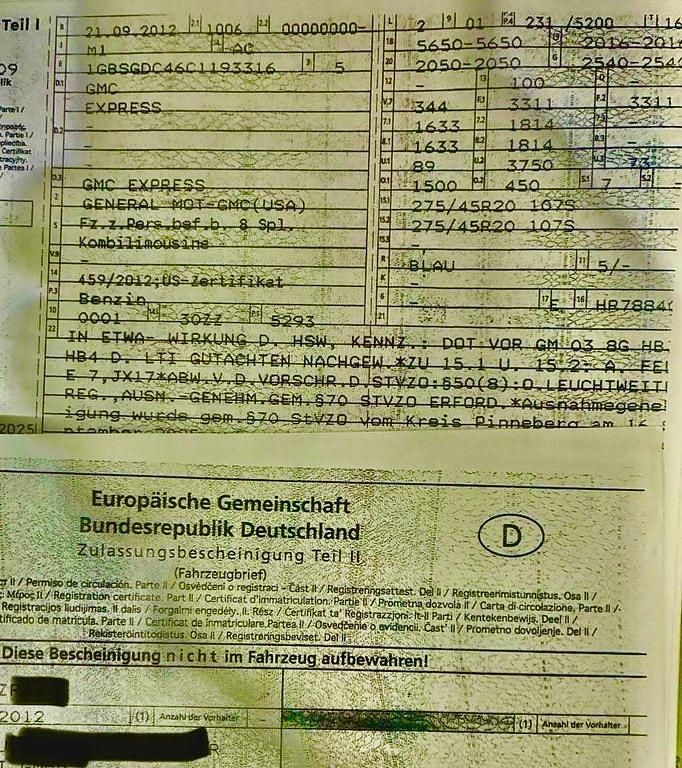 Teil I
B 21.09.2012 2.1 1006 2.2 00000000- L 2 9 01 P.2 P.4 231 /5200 T 16
J M1 4 AC 18 5650-5650 19 2016-201
E 1GBSGDC46C1193316 3 5 20 2050-2050 G 2540-254
D.1 GMC 12 - 13 100 Q -
EXPRESS V.7 344 F.1 3311 F.2 3311
D.2 - 7.1 1633 7.2 1814 7.3 -
- 8.1 1633 8.2 1814 8.3 -
- U.1 89 U.2 3750 U.3 73
D.3 GMC EXPRESS O.1 1500 O.2 450 S.1 7 S.2 -
2 GENERAL MOT-GMC(USA) 15.1 275/45R20 107S
5 Fz.z.Pers.bef.b. 8 Spl. 15.2 275/45R20 107S
Kombilimousine 15.3 -
V.9 - R BLAU 11 5/-
14 459/2012;US-Zertifikat K -
P.3 Benzin 6 - 17 E 16 HR7884
10 0001 14.1 30ZZ P.1 5293 21
22 IN ETWA- WIRKUNG D. HSW, KENNZ.: DOT VOR GM 03 8G HB
HB4 D. LTI GUTACHTEN NACHGEW.*ZU 15.1 U. 15.2: A. FE
E 7,JX17*ABW.V.D.VORSCHR.D.STVZO:§50(8):O.LEUCHTWEIT
REG.,AUSN.-GENEHM.GEM.§70 STVZO ERFORD.*Ausnahmegene
igung wurde gem.§70 StVZO vom Kreis Pinneberg am 16
2025
Europäische Gemeinschaft
Bundesrepublik Deutschland
D
Zulassungsbescheinigung Teil II
(Fahrzeugbrief)
II / Permiso de circulación. Parte II / Osvědčení o registraci – Část II / Registreringsattest. Del II / Registreerimistunnistus. Osa II /
Μέρος II / Registration certificate. Part II / Certificat d'immatriculation. Partie II / Prometna dozvola II / Carta di circolazione, Parte II /
Registracijos liudijimas. II dalis / Forgalmi engedély. II. Rész / Ċertifikat ta' Reġistrazzjoni: It-II Parti / Kentekenbewijs. Deel II /
tificado de matrícula. Parte II / Certificat de înmatriculare. Partea II / Osvedčenie o evidencii. Časť II / Prometno dovoljenje. Del II /
Rekisteröintitodistus. Osa II / Registreringsbeviset. Del II
Diese Bescheinigung nicht im Fahrzeug aufbewahren!
2012 (1) Anzahl der Vorhalter - (1) Anzahl der Vorhalter